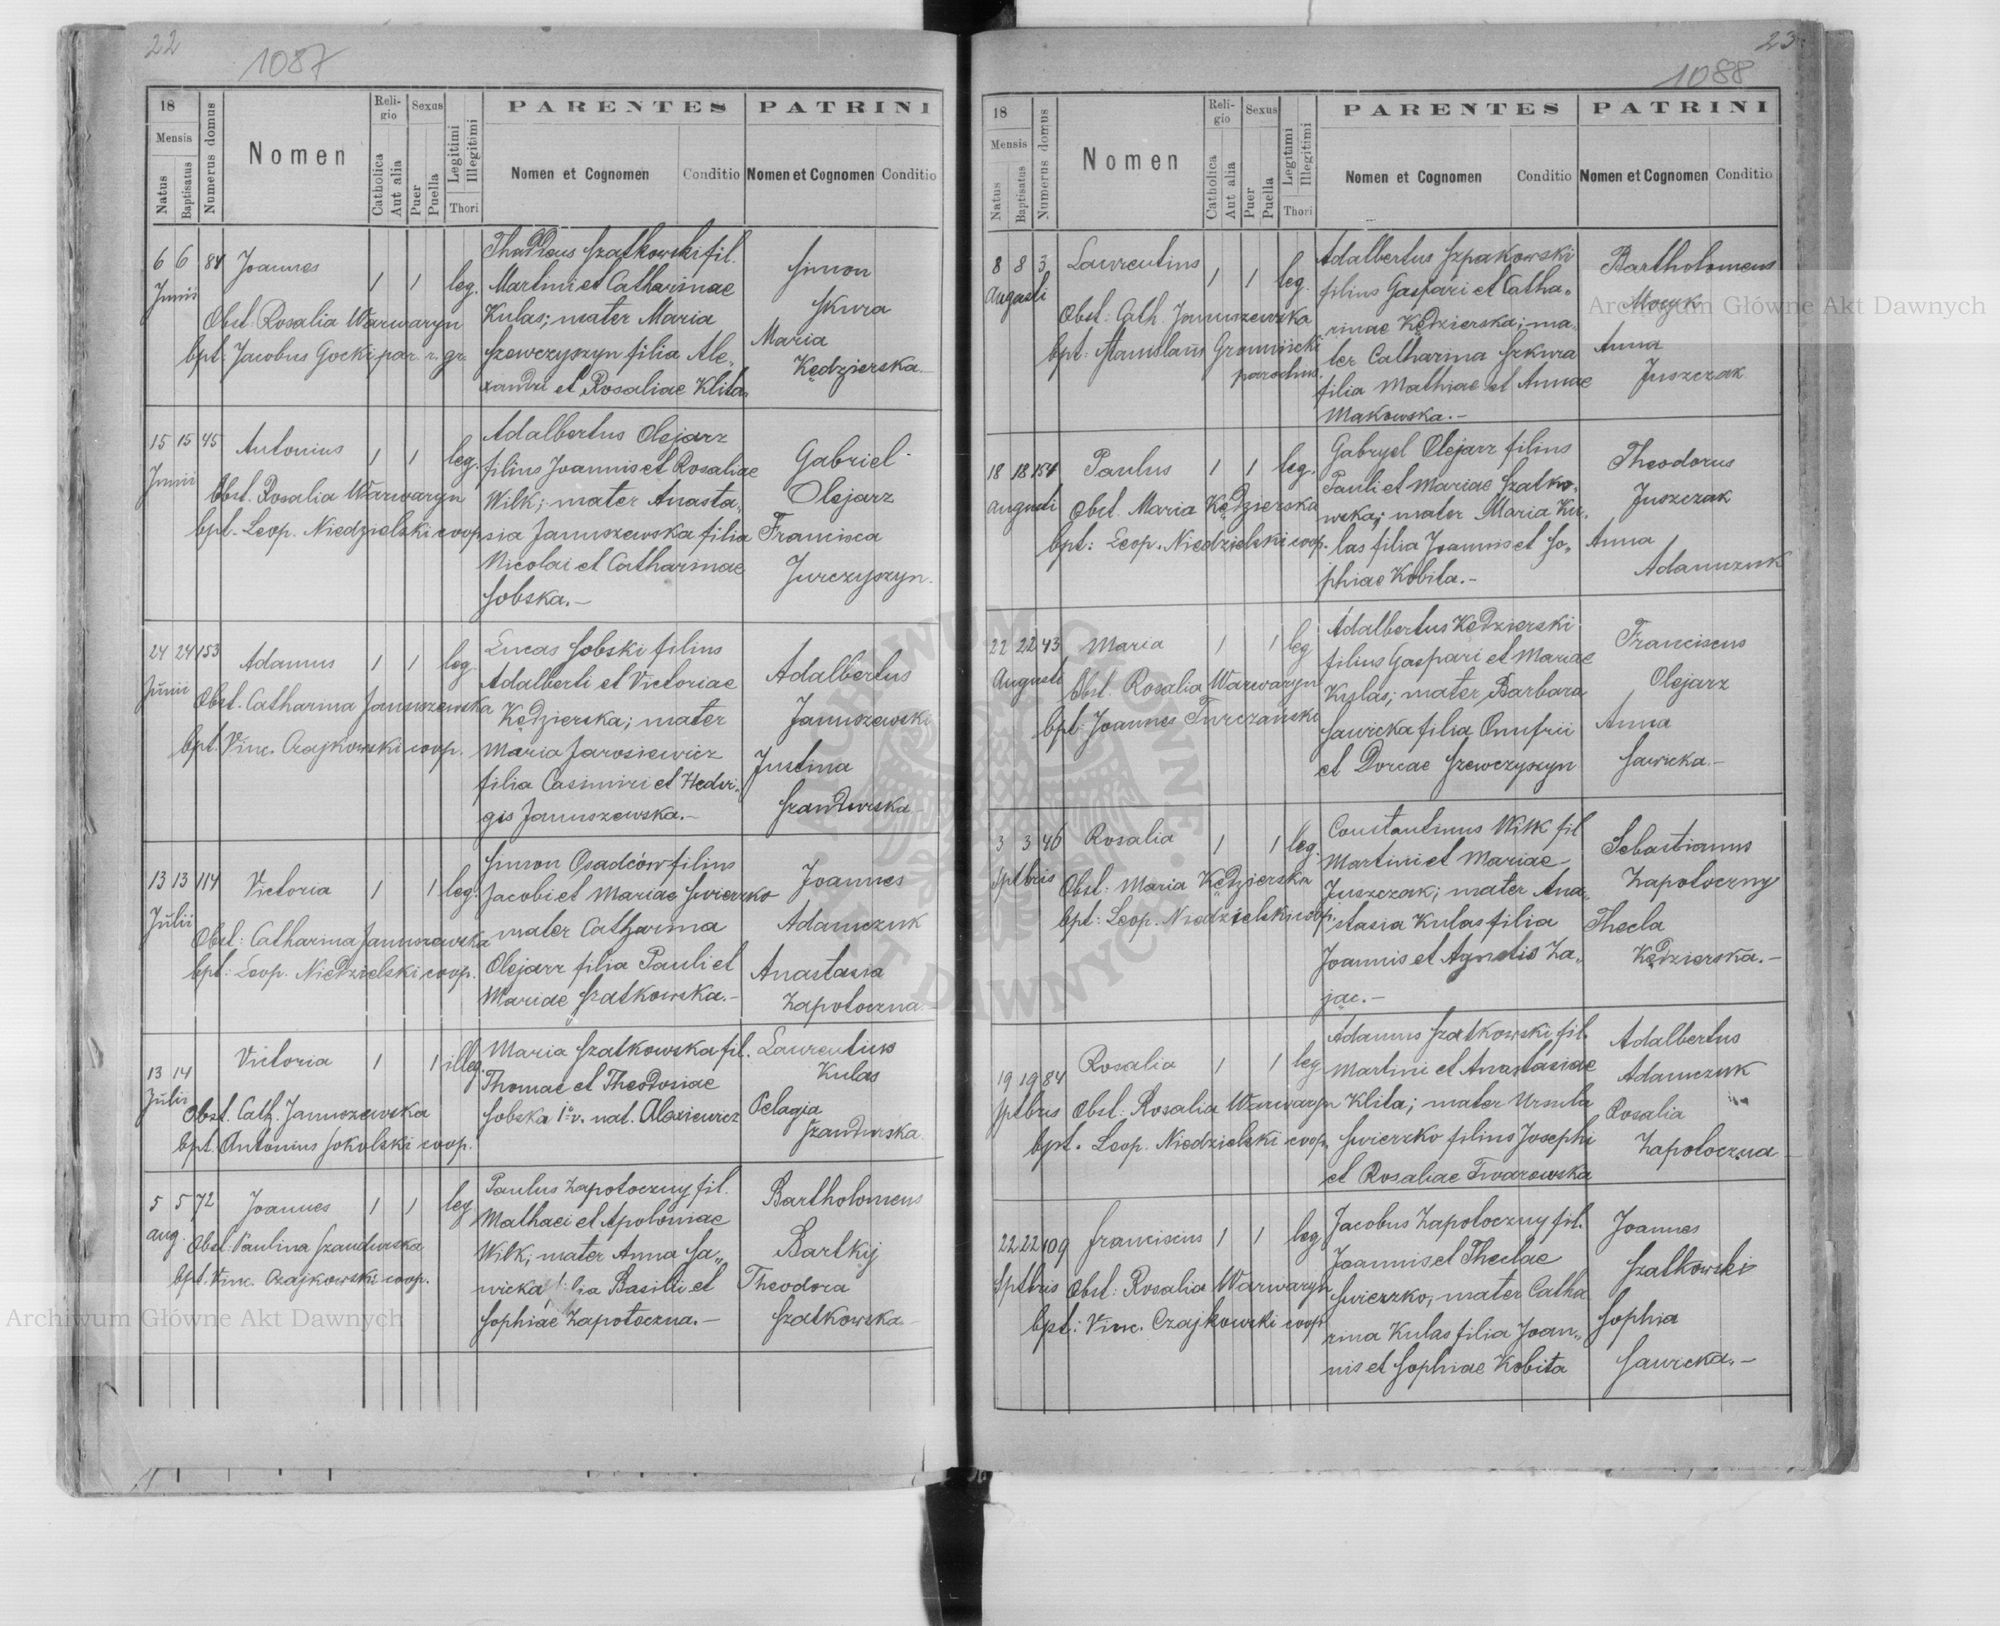 22
1087
18
Mensis
Natus
Baptisatus
Numerus domus
Nomen
Reli-
gio
Catholica
Aut alia
Sexus
Puer
Puella
Legitimi
Illegitimi
Thori
PARENTES
Nomen et Cognomen
Conditio
PATRINI
Nomen et Cognomen
Conditio
6 6 84 Joannes 1 1 leg.
Junii
Obst. Rosalia Warwaryn
bpt. Jacobus Gocki par. r. gr.
Thaddeus Szatkowski fil.
Martini et Catharinae
Kulas; mater Maria
Szewczyszyn filia Ale„
xandri et Rosaliae Klita.
Simon
Skura
Maria
Kędzierska
15 15 45 Antonius 1 1 leg.
Junii
Obst. Rosalia Warwaryn
bpt. Leop. Niedzielski coop.
Adalbertus Olejarz
filius Joannis et Rosaliae
Wilk; mater Anasta„
sia Januszewska filia
Nicolai et Catharinae
Sobska.–
Gabriel
Olejarz
Francisca
Jurczyszyn.
24 24 153 Adamus 1 1 leg.
Junii
Obst. Catharina Januszewska
bpt. Vinc. Czajkowski coop.
Lucas Sobski filius
Adalberti et Victoriae
Kędzierska; mater
Maria Jarosiewicz
filia Casimiri et Hedvi„
gis Januszewska.–
Adalbertus
Januszewski
Justina
Szandurska
13 13 114 Victoria 1 1 leg.
Julii
Obst: Catharina Januszewska
bpt: Leop. Niedzielski coop.
Simon Osadców filius
Jacobi et Mariae Swierzko
mater Catharina
Olejarz filia Pauli et
Mariae Szatkowska.–
Joannes
Adamczuk
Anastasia
Zapotoczna.
13 14 Victoria 1 1 illeg.
Julii
Obst. Cath. Januszewska
bpt. Antonius Sokolski coop.
Maria Szatkowska fil.
Thomae et Theodosiae
Sobska 1º v. nat. Alexiewicz
Laurentius
Kulas
Pelagia
Szandurska.
5 5 72 Joannes 1 1 leg
aug.
Obst. Paulina Szandurska
bpt. Vinc. Czajkowski coop.
Paulus Zapotoczny fil.
Mathaei et Apoloniae
Wilk; mater Anna Sa„
wicka filia Basilii et
Sophiae Zapotoczna.–
Bartholomeus
Bartkij
Theodora
Szatkowska
23
1088
18
Mensis
Natus
Baptisatus
Numerus domus
Nomen
Reli-
gio
Catholica
Aut alia
Sexus
Puer
Puella
Legitimi
Illegitimi
Thori
PARENTES
Nomen et Cognomen
Conditio
PATRINI
Nomen et Cognomen
Conditio
8 8 3 Laurentius 1 1 leg.
Augusti
Obst: Cath. Januszewska
bpt: Stanislaus Gromnicki
parochus.
Adalbertus Szpakowski
filius Gaspari et Catha„
rinae Kędzierska; ma„
ter Catharina Szkura
filia Mathiae et Annae
Makowska.–
Bartholomeus
Anna
Juszczak
18 18 154 Paulus 1 1 leg.
Augusti
Obst. Maria Kędzierska
bpt: Leop. Niedzielski coop.
Gabryel Olejarz filius
Pauli et Mariae Szatko„
wska; mater Maria Ku„
las filia Joannis et So„
phiae Kobita.–
Theodorus
Juszczak
Anna
Adamczuk
22 22 43 Maria 1 1 leg
Augusti
Obst. Rosalia Warwaryn
bpt: Joannes Turczański
Adalbertus Kędzierski
filius Gaspari et Mariae
Kulas; mater Barbara
Sawicka filia Onufrii
et Dorcae Szewczyszyn
Franciscus
Olejarz
Anna
Sawicka.–
3 3 46 Rosalia 1 1 leg.
Sptbris
Obst: Maria Kędzierska
bpt: Leop. Niedzielski coop.
Constantinus Wilk fil
Martini et Mariae
Juszczak; mater Ana„
stasia Kulas filia
Joannis et Agnetis Za„
jąc.–
Sebastianus
Zapotoczny
Thecla
Kędzierska.–
19 19 84 Rosalia 1 1 leg
Sptbris
Obst. Rosalia Warwaryn
bpt. Leop. Niedzielski coop.
Adamus Szatkowski fil.
Martini et Anastasiae
Klita; mater Ursula
Swierzko filius Josephi
et Rosaliae Twarowska
Adalbertus
Adamczuk
Rosalia
Zapotoczna
22 22 109 Franciscus 1 1 leg
Sptbris
Obst: Rosalia Warwaryn
bpt: Vinc. Czajkowski coop.
Jacobus Zapotoczny fil.
Joannis et Theclae
Swierzko; mater Catha
rina Kulas filia Joan„
nis et Sophiae Kobita
Joannes
Szatkowski
Sophia
Sawicka.–
Archiwum Główne Akt Dawnych
Archiwum Główne Akt Dawnych
ARCHIWUM GŁÓWNE AKT DAWNYCH